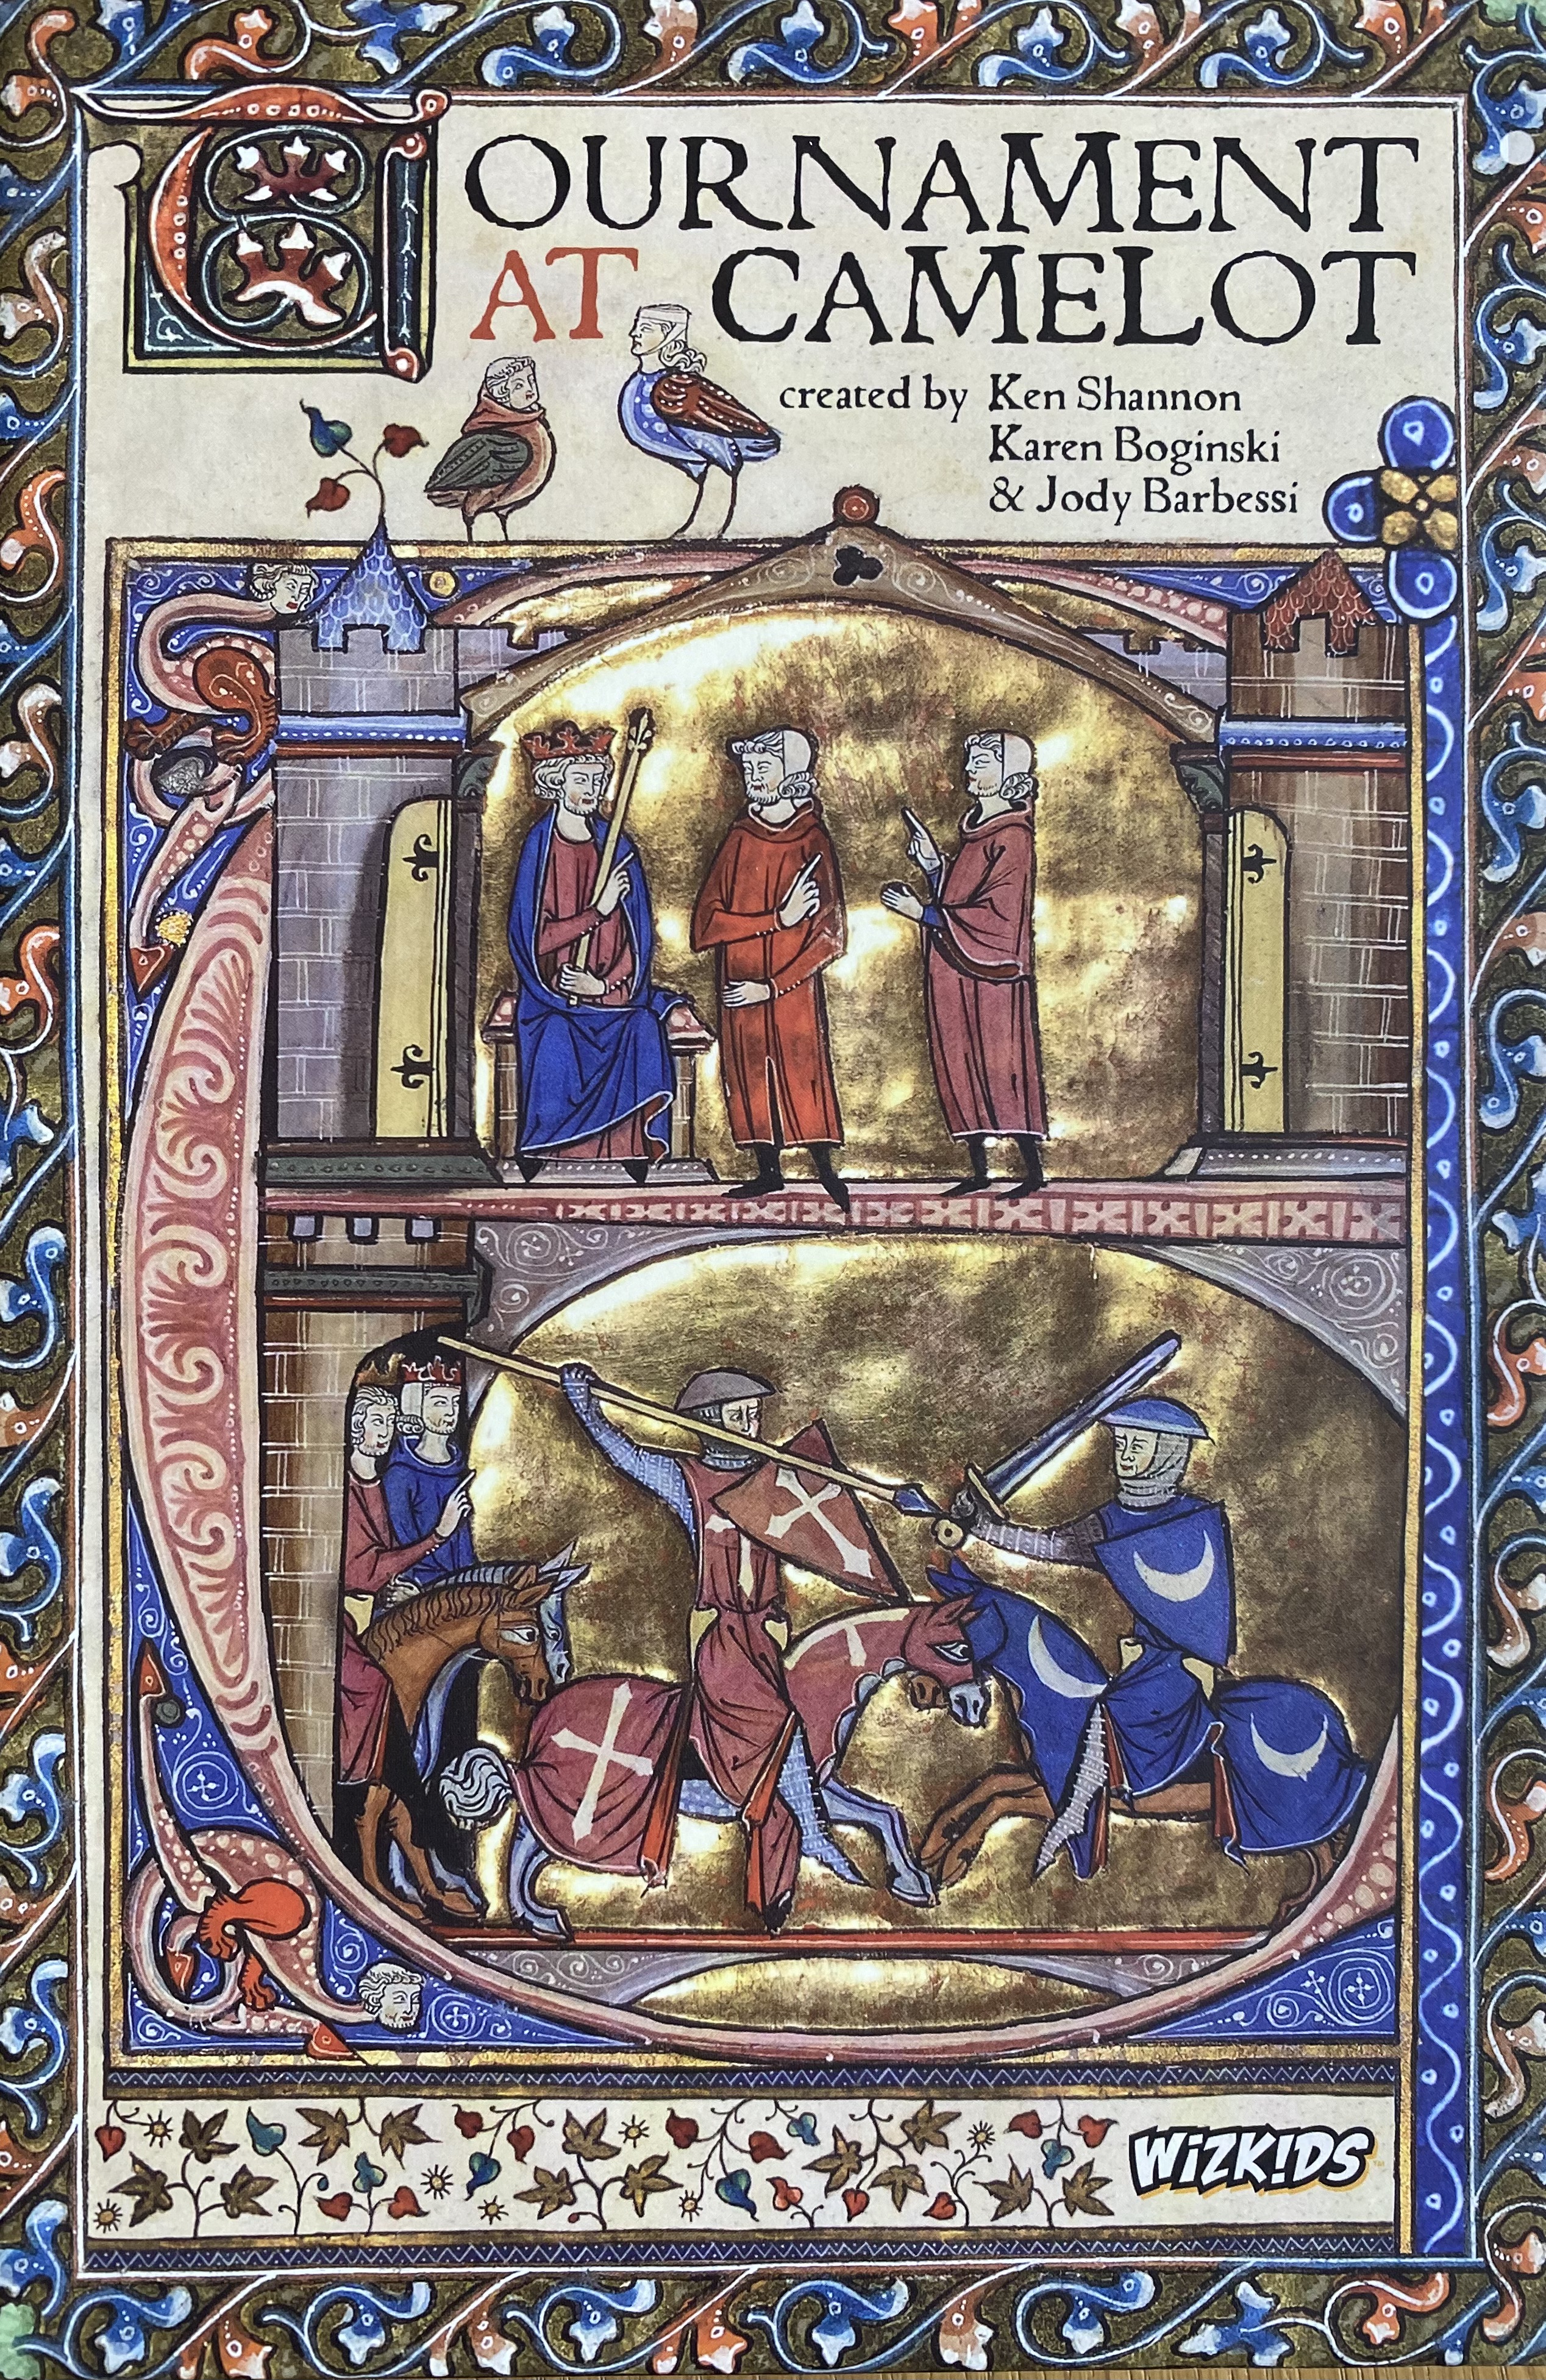 TOURNAMENT
AT CAMELOT
created by Ken Shannon
Karen Boginski
& Jody Barbessi
WIZKIDS™